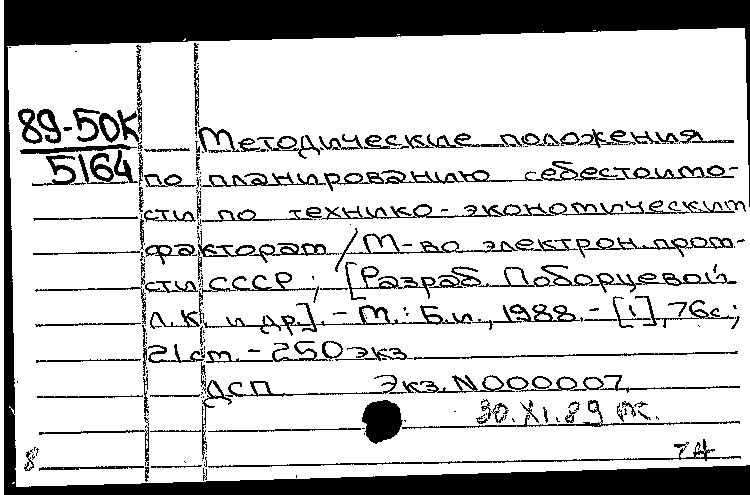 89-50К
5164
Методические положения
по планированию себестоимо-
сти по технико-экономическим
факторам / М-во электрон. пром-
сти СССР; [Разраб. Поборцевой
Л.К. и др.]. - М.: Б.и., 1988. - [1], 76с.;
21см. - 250 экз.
ДСП Экз. N000007.
30.XI.89
8